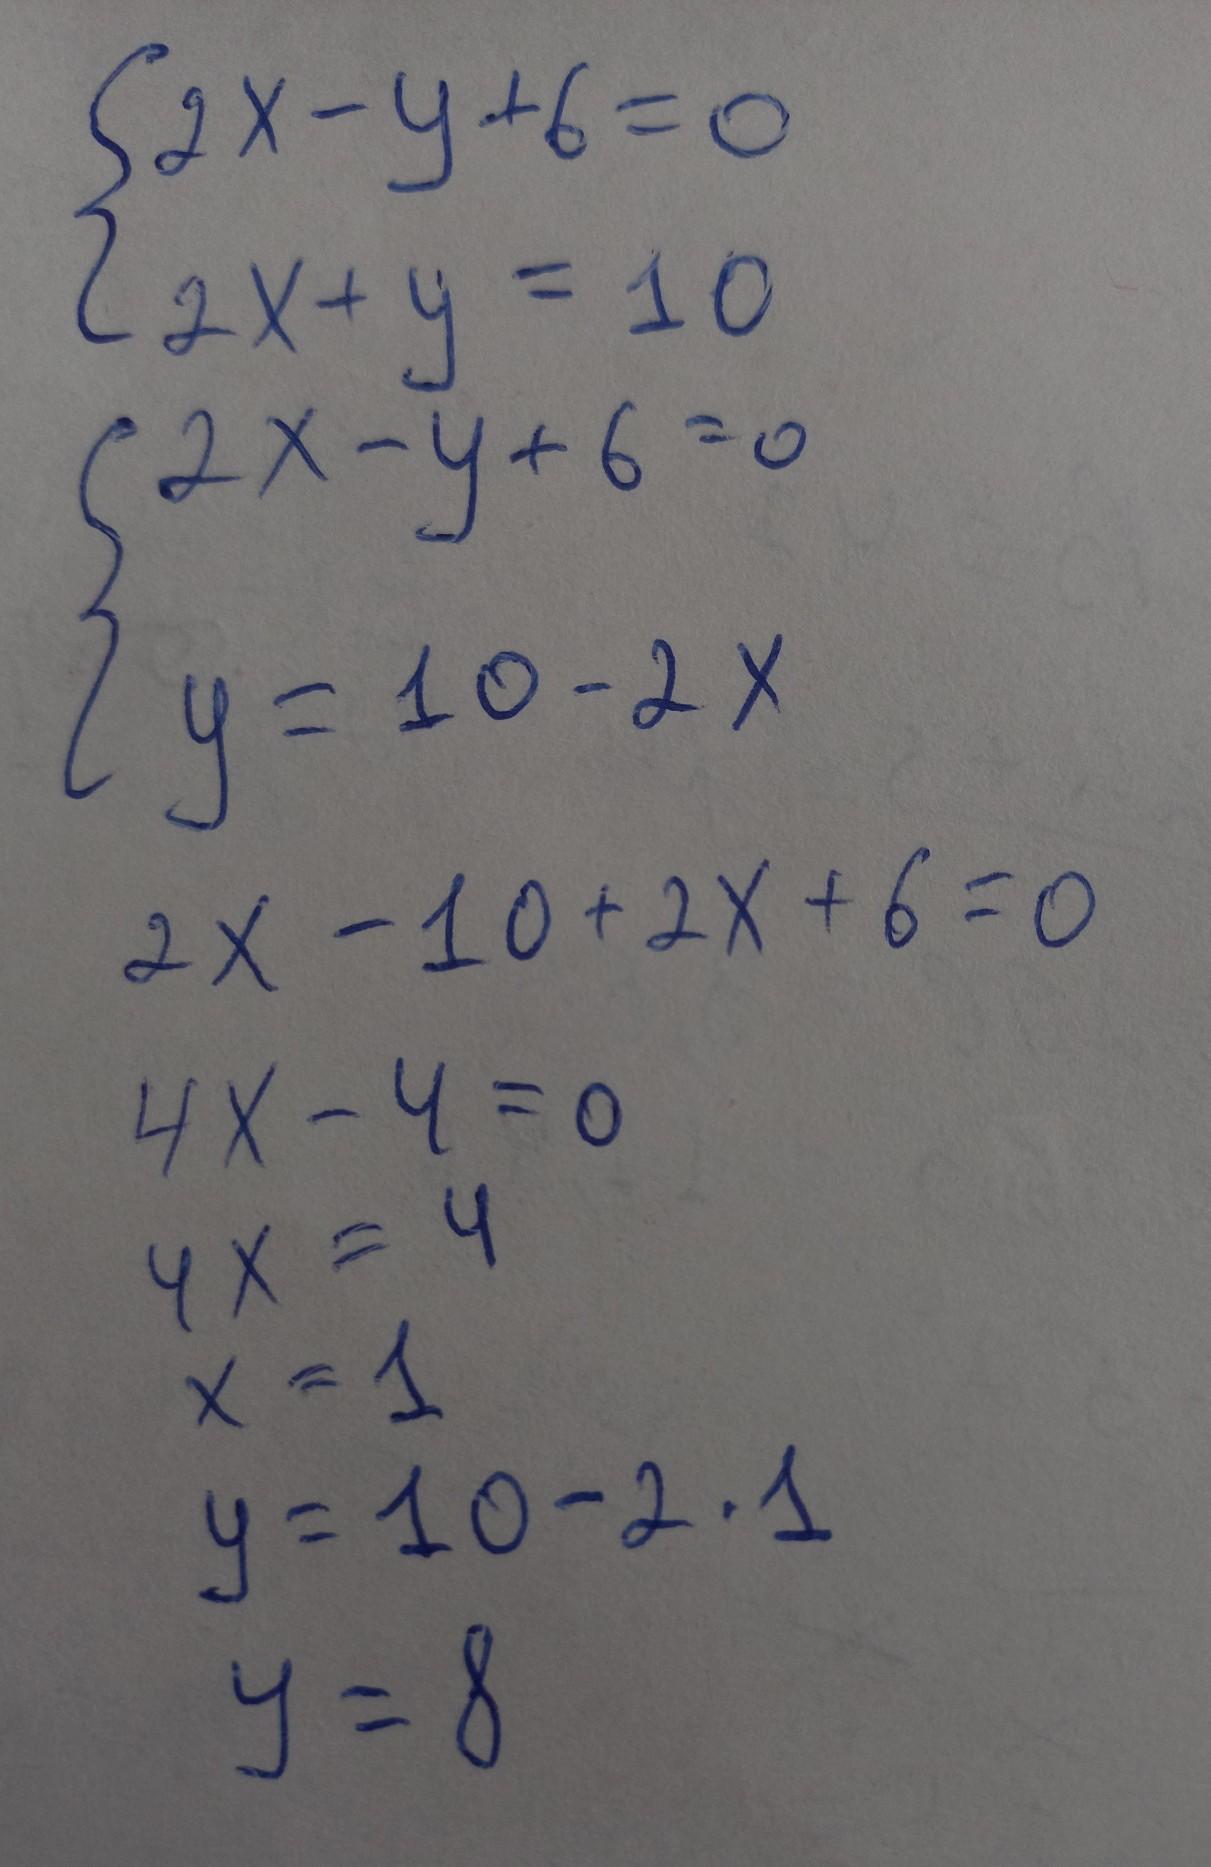 2x-y+6=0
2x+y=10
2x-y+6=0
y=10-2x
2x-10+2x+6=0
4x-4=0
4x=4
x=1
y=10-2·1
y=8